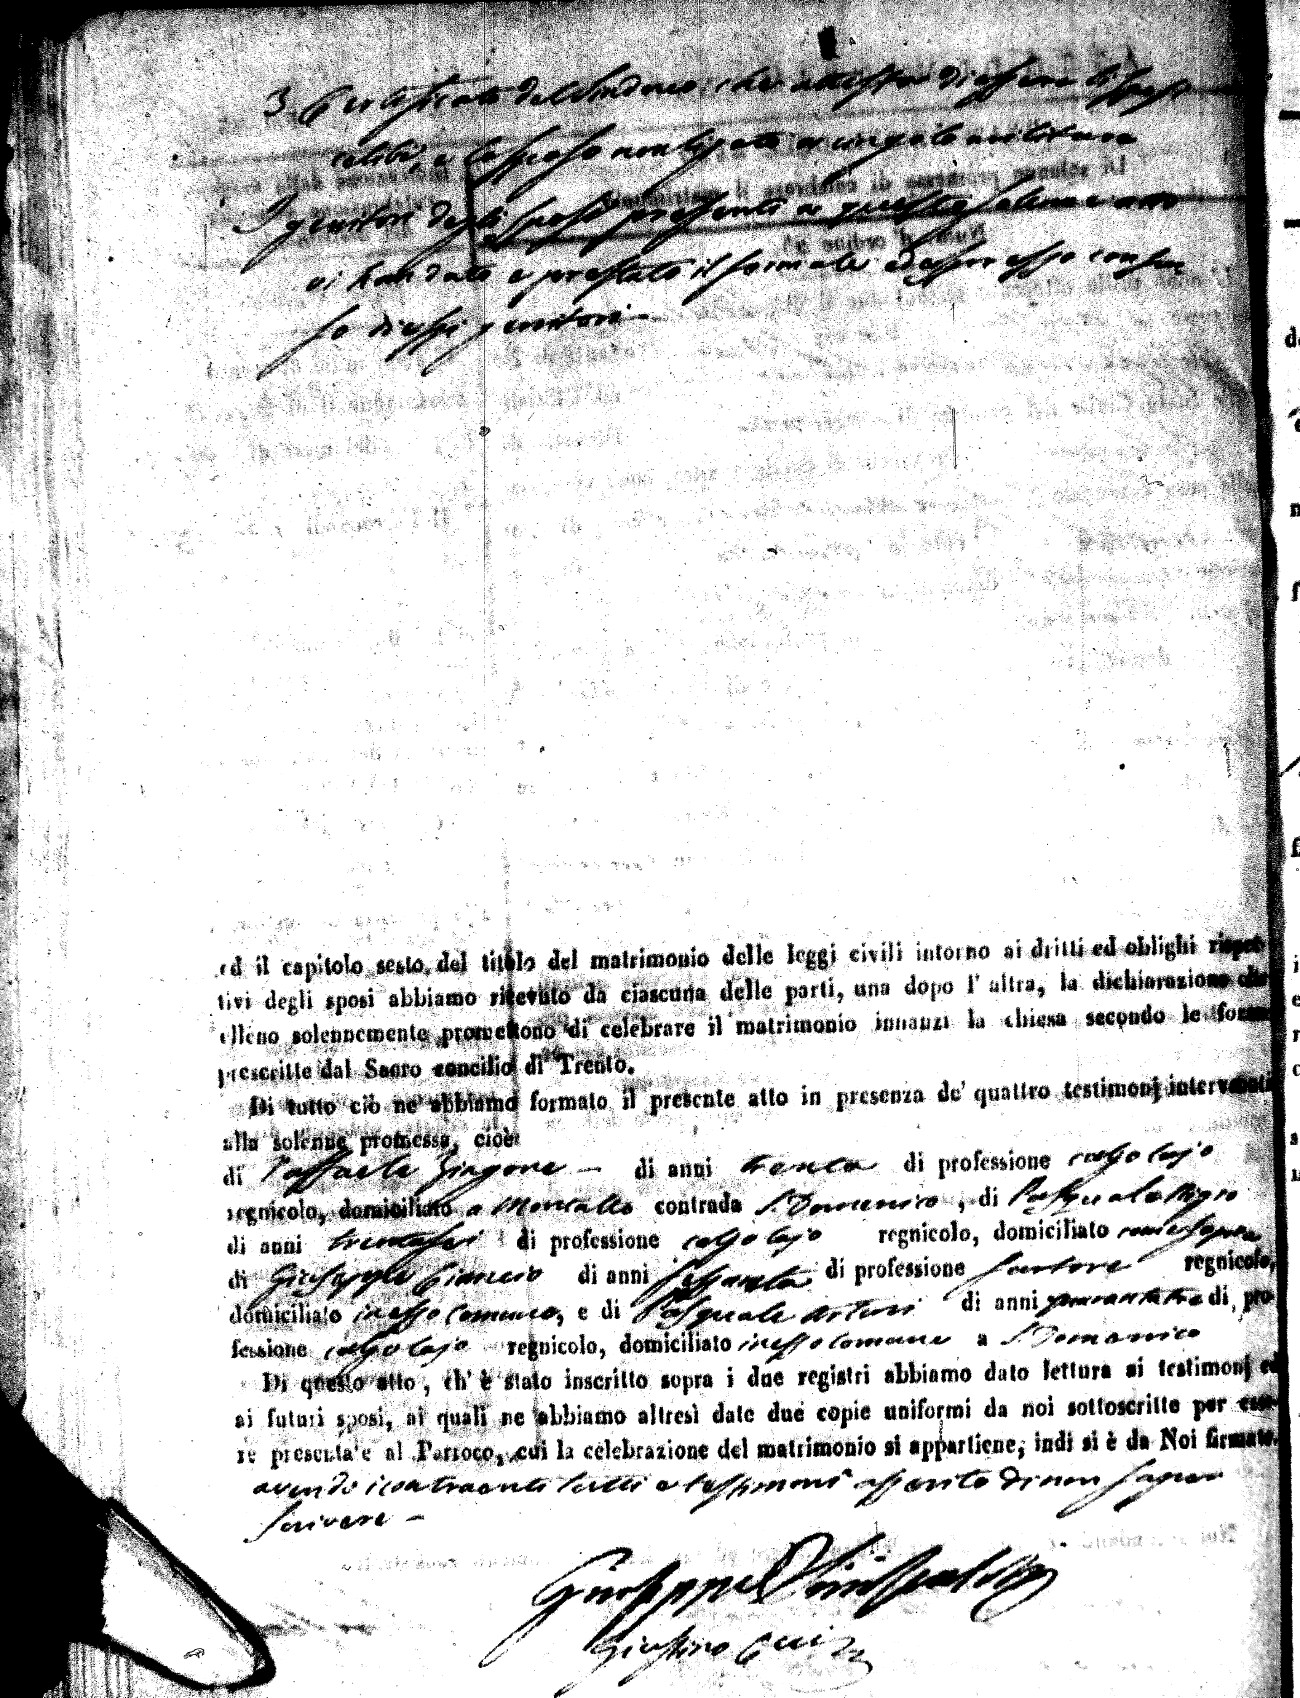 3. Certificato del Sindaco, che attesta di essere li sposi
celibi, e lo sposo non ligato a vincolo militare
I genitori degli sposi presenti a questo solenne atto
vi han dato e prestato il formale ed espresso consen
so di essi genitori —
ed il capitolo sesto del titolo del matrimonio delle leggi civili intorno ai dritti ed oblighi rispet-
tivi degli sposi abbiamo ricevuto da ciascuna delle parti, una dopo l' altra, la dichiarazione che
elleno solennemente promettono di celebrare il matrimonio innanzi la chiesa secondo le forme
prescritte dal Sacro concilio di Trento.
Di tutto ciò ne abbiamo formato il presente atto in presenza de' quattro testimonj intervenuti
alla solenne promessa, cioè
di Raffaele — di anni trenta di professione calzolajo
regnicolo, domiciliato a Montalto contrada S. Domenico, di Pasquale
di anni trentasei di professione calzolajo regnicolo, domiciliato come sopra
di Giuseppe di anni sessanta di professione sartore regnicolo,
domiciliato in esso comune, e di Pasquale Arturi di anni quarantatre di pro-
fessione calzolajo regnicolo, domiciliato in esso comune a S. Domenico
Di questo atto, ch' è stato inscritto sopra i due registri abbiamo dato lettura ai testimonj ed
ai futuri sposi, ai quali ne abbiamo altresì date due copie uniformi da noi sottoscritte per esse-
re presentate al Parroco, cui la celebrazione del matrimonio si appartiene, indi si è da Noi firmato.
avendo i contraenti tutti e testimoni asserito di non saper
scrivere —
Giuseppe
Giustino